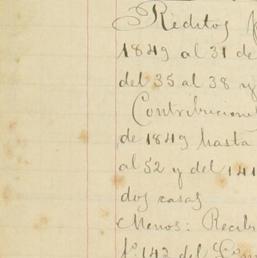 Reditos
1849 al 31 de
del 35 al 38 y
Contribucione
de 1849 hasta
al 52 y del 141
dos casas
Menos: Recib
fº 142 del